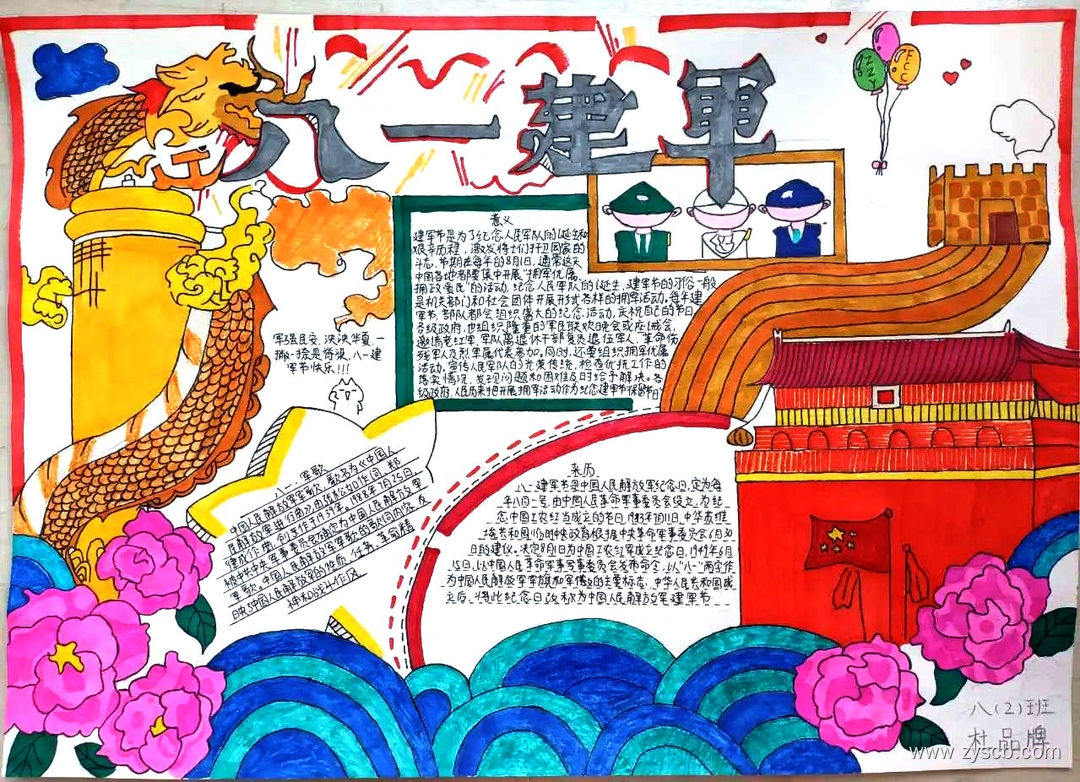 八一建軍
意义
建军节是为了纪念人民军队的诞生和
艰辛历程,激励将士们捍卫国家的
斗志,节期在每年的8月1日,通常这天
中国各地都隆集中开展"拥军优属,
拥政爱民"的活动,纪念人民军队的诞生,建军节的习俗一般
是机关部门和社会团体开展形式各样的拥军活动。每年建
军节,部队都会组织盛大的纪念活动,庆祝自己的节日,
各级政府,也组织隆重的军民联欢晚会或座谈会,
邀请老红军,军队离退休干部复员退伍军人,革命伤
残军人及烈军属代表参加。同时,还要组织拥军优属
活动。宣传人民军队的光荣传统,检查优抚工作的
落实情况,发现问题和困难及时给予解决。各
级政府,人民历来把开展拥军活动作为纪念建军节
军强民安,泱泱华夏一
撇一捺是脊梁,八一建
军节快乐!!!
八一·军歌
中国人民解放军军歌,歌名为《中国人
民解放军进行曲》由张松公如作词,郑
律成作曲,创作于1939年。1988年7月25日,
经中共中央军事委员会确定为中国人民解放军
军歌。中国人民解放军军歌的歌词内容,反
映了中国人民解放军的性质、任务、革命精
神和战斗作风
来历
八一建军节是中国人民解放军纪念日,定为每
年八月一号,由中国人民革命军事委员会设立,为纪
念中国工农红当成立的节日。1933年7月11日,中华苏维
埃共和国
日的建议。决定8月1日为中国工农红军成立纪念日,1949年6月
15日,以中国人民革命军事委员会发布命令,以"八一"两字作
为中国人民解放军军旗和军徽的主要标志,中华人民共和国成
立后,将此纪念日改称为中国人民解放军建军节
八(2)班
杜品牌
www.zyscb.com